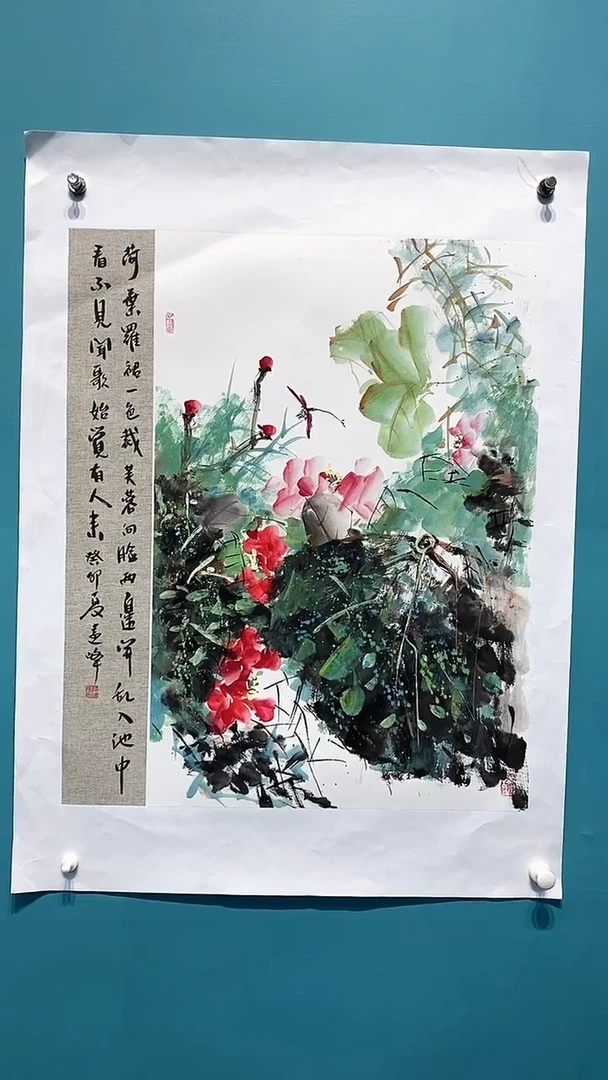 荷叶罗裙一色裁芙蓉向脸两边开乱入池中
看不见闻歌始觉有人来癸卯夏孟峰